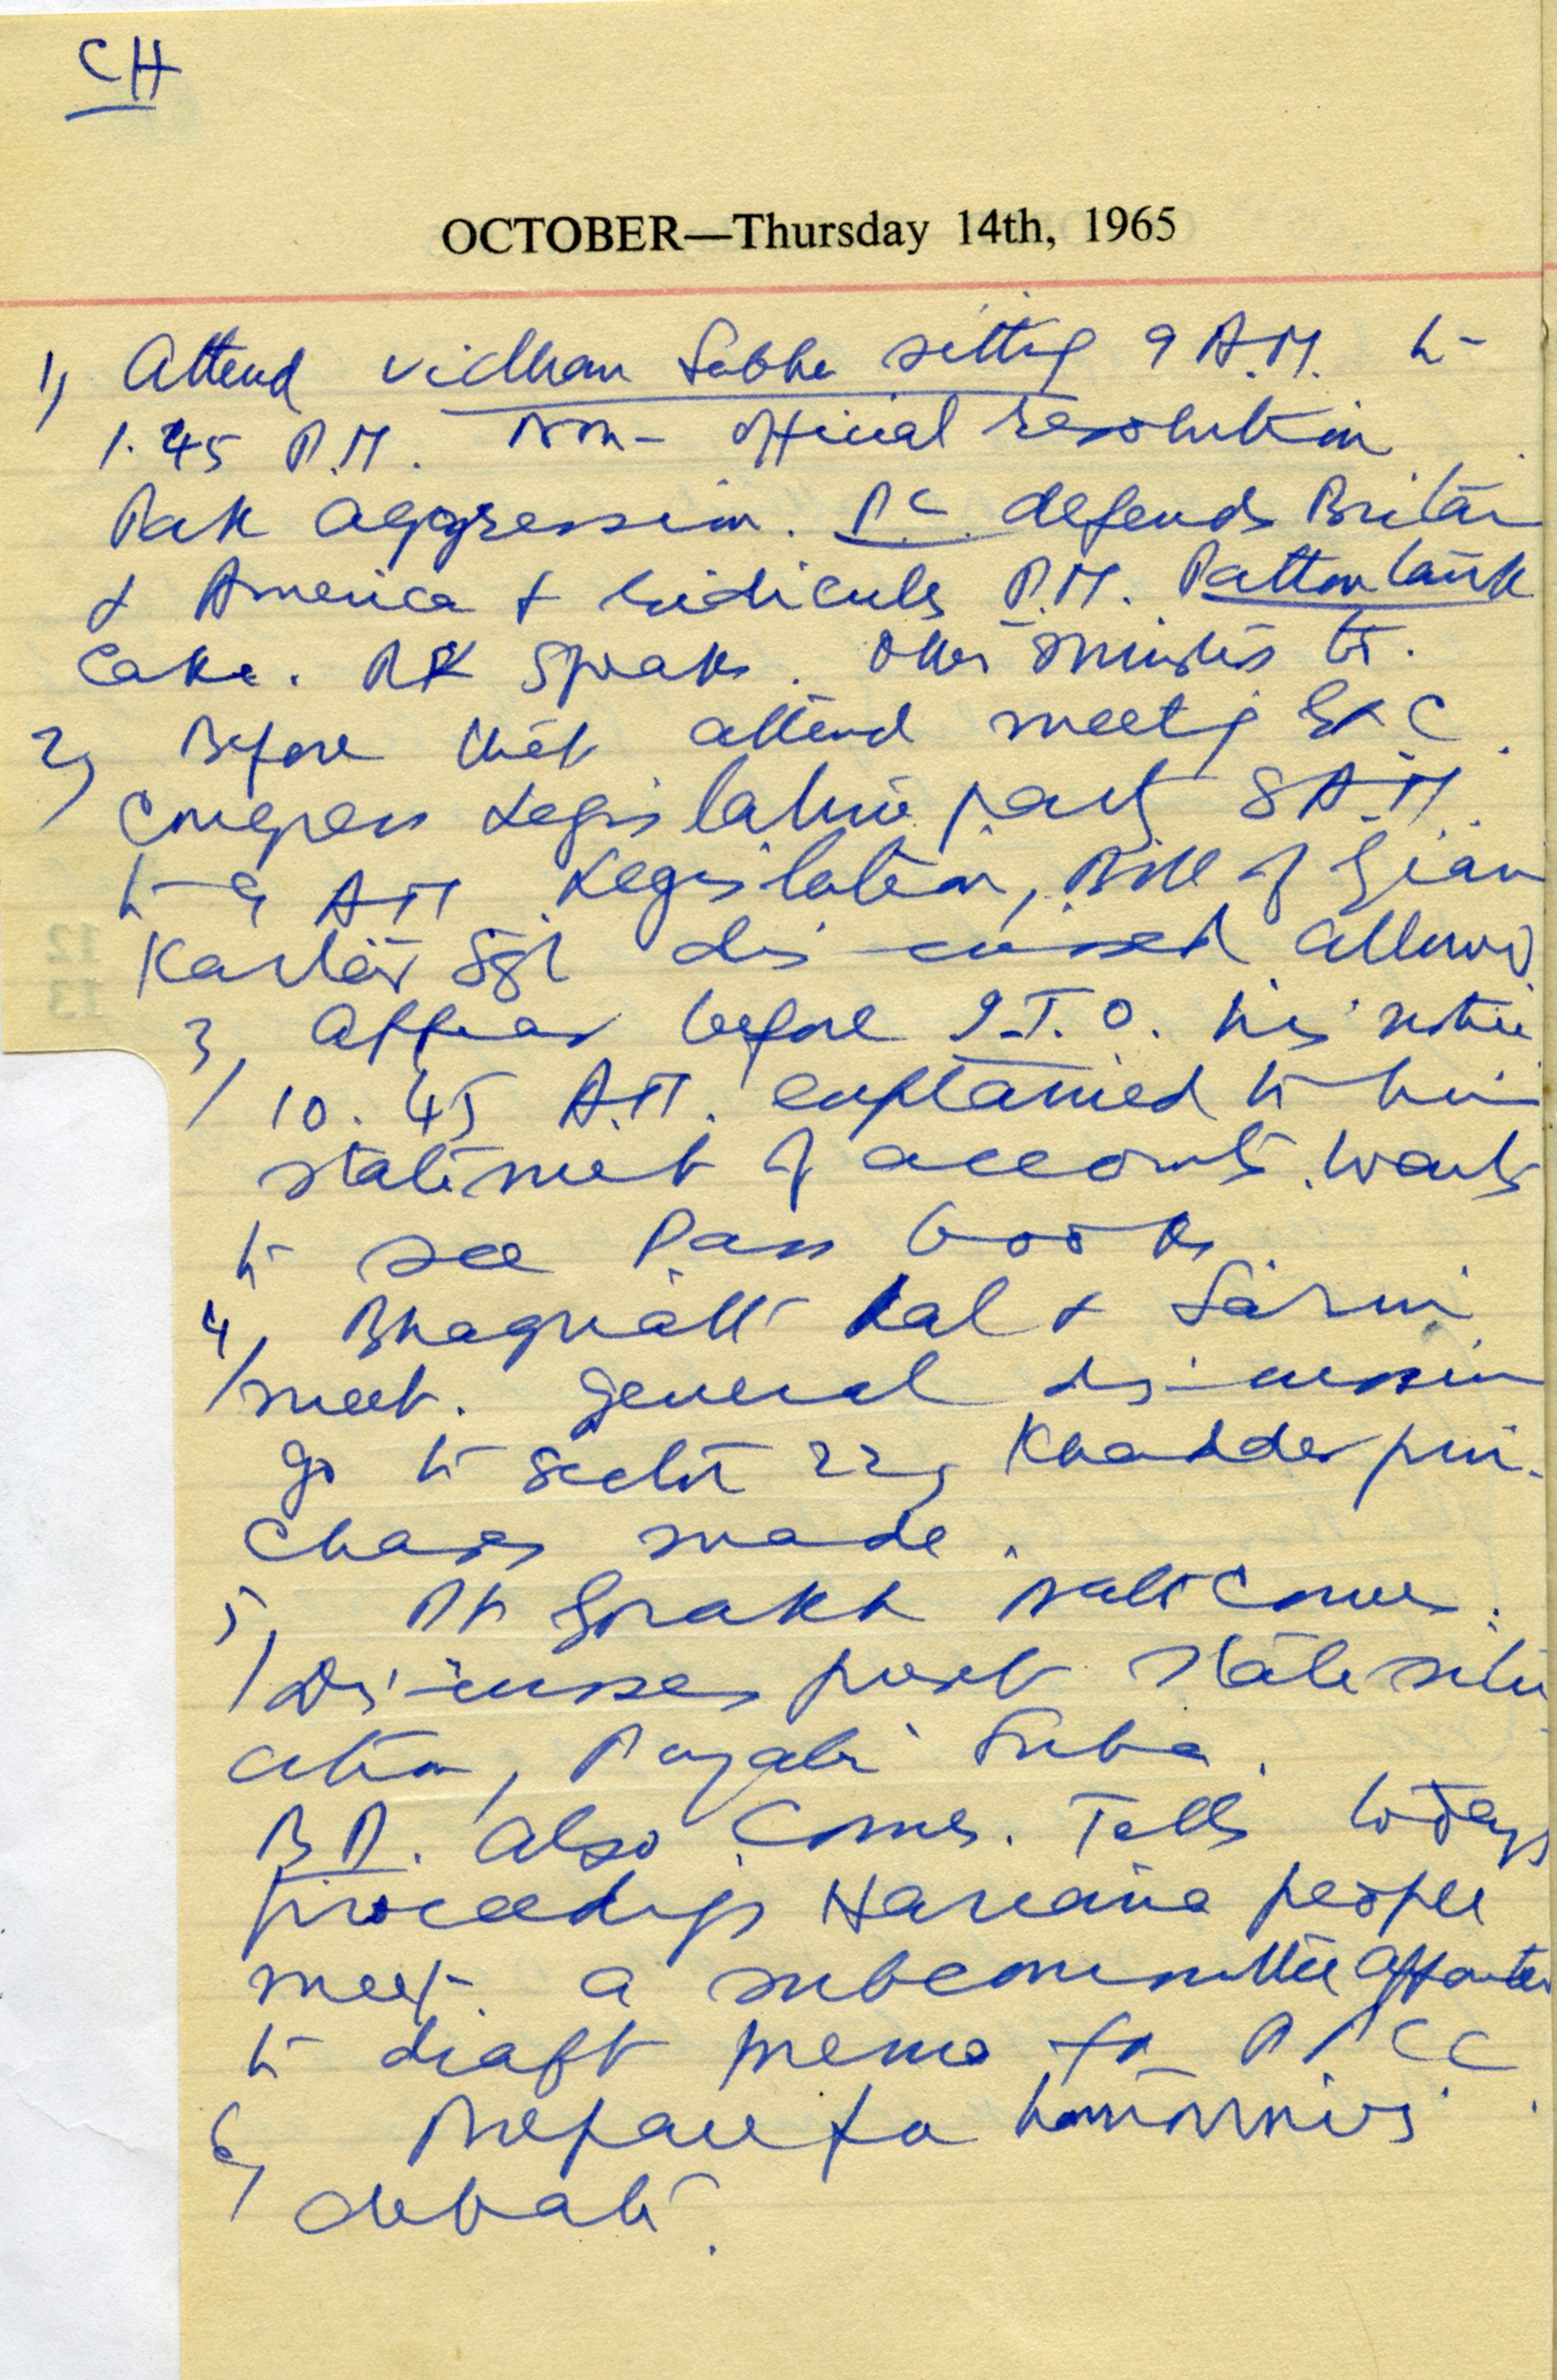 CH
OCTOBER—Thursday 14th, 1965
1) Attend Vidhan Sabha sitting 9 A.M. to
1.45 P.M. Non-official resolution
Pak aggression. P.C. defends Britain
& America & ridicules P.M. Patton tank
Cake. RK Speaks. Other ministers to.
2) Before that attend meeting Ex. C.
Congress Legislative party 8 A.M.
to 9 AM. Legislation, Bill of Gian
Kartar Sgh discussed allowed
3) Appear before I.T.O. his notice
10.45 A.M. explained to him
statement of accounts. wants
to see Pass books.
4) Bhagwati Lal &
meet. General discussion
go to Sector 22, Khaddar pur-
chases made.
5) Pt Gorakh Nath comes.
Discusses post State situ
ation, Punjabi Suba.
B.D. also comes. Tells todays
proceedings Hariana people
meet. a subcommittee appointed
to draft memo for PPCC
6) Prepare for tomorrow's
debate.